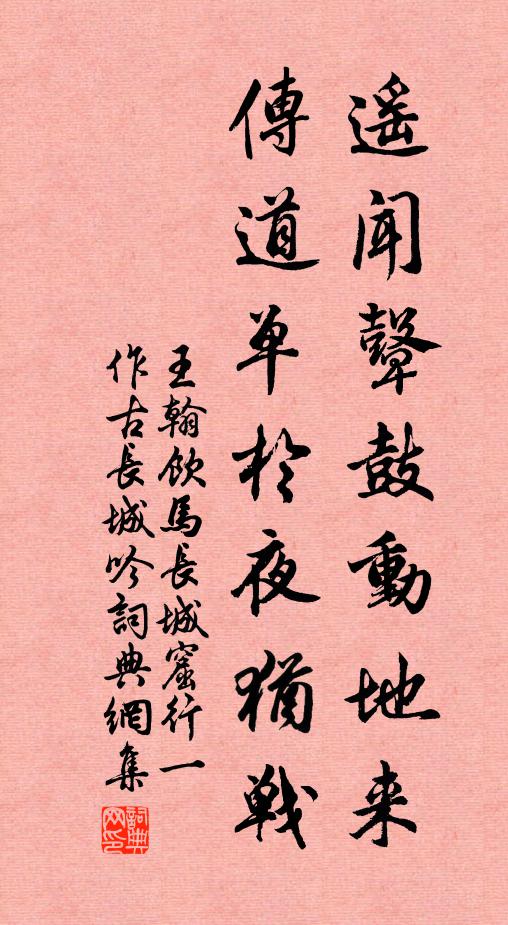 遥闻鼙鼓動地来
傳道单於夜猶戰
王翰飲馬長城窟行一
作古長城吟詞典網集
詞典网印